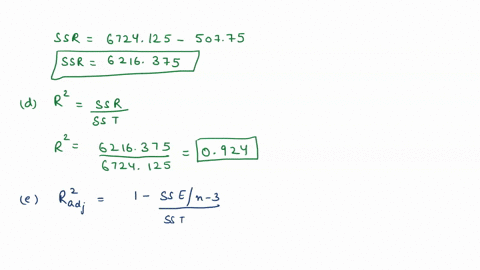 SSR = 6724.125 - 507.75
SSR = 6216.375
(d) R² = SSR / SST
R² = 6216.375 / 6724.125 = 0.924
(e) R²adj = 1 - SSE/n-3 / SST